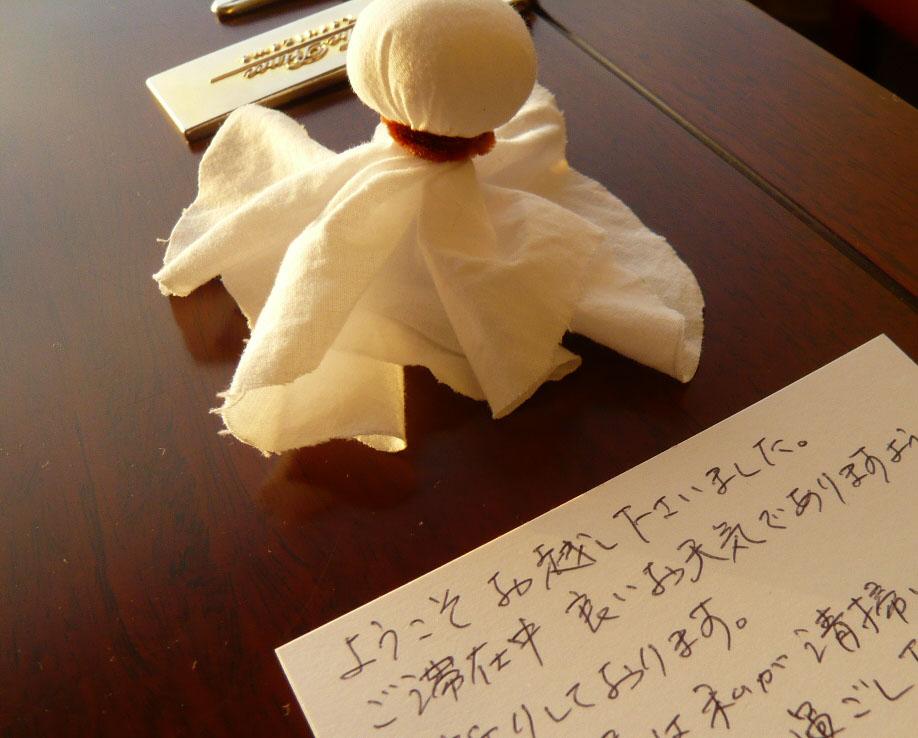 ようこそ お越し下さいました。
ご滞在中 良いお天気でありますよう
りしております。
は私が清掃
過ごし